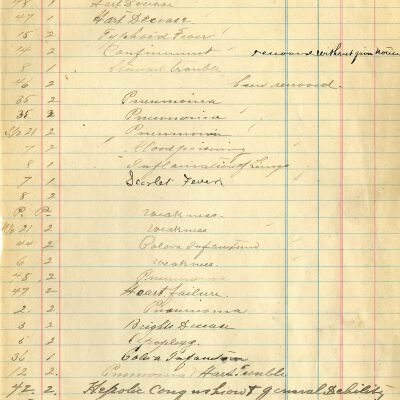 48 1 Hart Decease
47 1 Hart Decease
15 2 Typhoid Fever
14 2 Confinement removed without given notice
8 1 Stomach trouble
46 2 been removed.
35 2 Pneumonia
35 2 Pneumonia
21 2 Pneumonia
7 2 Bloodpoisining
8 1 Inflamation of Lungs
7 1 Scarlet Fever
8 2
P. P. Weakness.
21 2 Weakness
44 2 Colora Infantum
6 2 Weakness.
48. 2 Pneumonia
47 2 Heart failure.
2. 2 Pneumonia
3 2 Brights Decease
5 2 Apoplexy.
36 1 Colora Infantum
12 2. Pneumonia / Hart Trouble
42. 2. General Debility